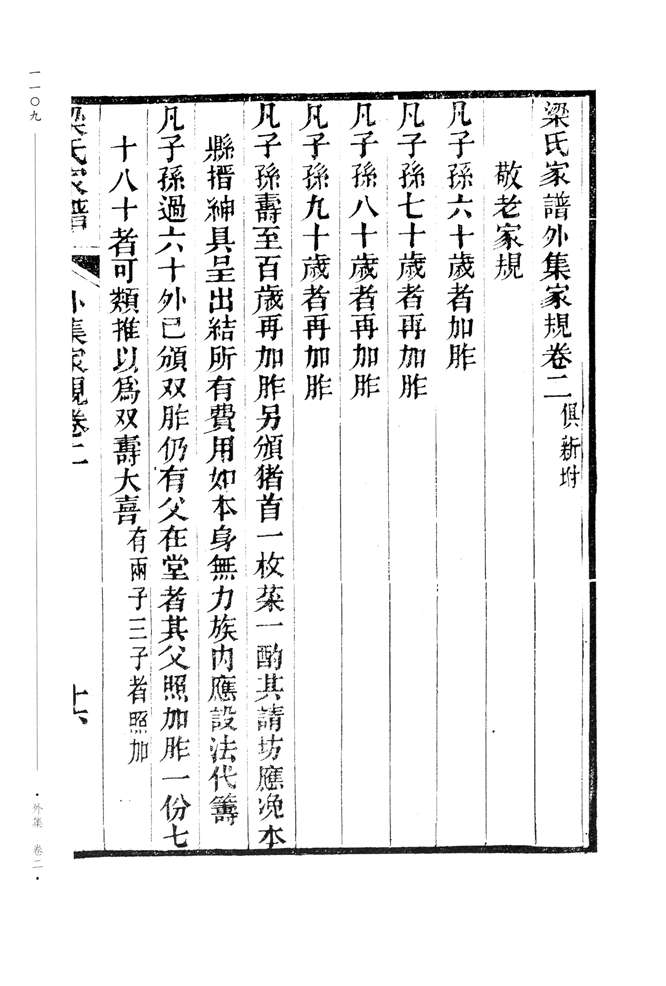 梁氏家譜外集家規卷二 俱新坿
敬老家規
凡子孫六十歲者加胙
凡子孫七十歲者再加胙
凡子孫八十歲者再加胙
凡子孫九十歲者再加胙
凡子孫壽至百歲再加胙另頒猪首一枚菜一酌其請坊應凂本
縣搢紳具呈出結所有費用如本身無力族内應設法代籌
凡子孫過六十外已頒双胙仍有父在堂者其父照加胙一份七
十八十者可類推以為双壽大喜 有兩子三子者照加
梁氏家譜 外集家規卷二 十六
一一〇九
·外集 卷二·